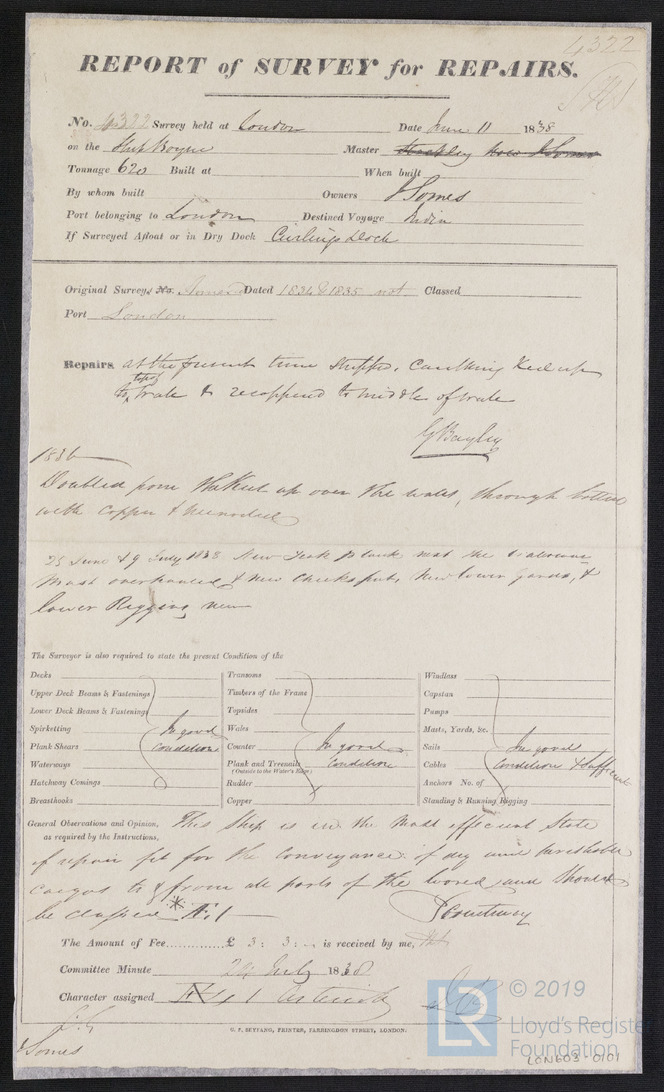 4322
REPORT of SURVEY for REPAIRS.
No. 4322 Survey held at London Date June 11 1838
on the Ship Boyne Master
Tonnage 620 Built at When built
By whom built Owners J Somes
Port belonging to London Destined Voyage India
If Surveyed Afloat or in Dry Dock Curlings Dock
Original Survey No. Dated 1834 & 1835 not Classed
Port London
Repairs at the present time stripped, caulking Keel up
to top of Wale & recoppered to middle of wale
G Bayley
1836
Doubled from the Keel up over the wales, through bolted
with Copper &
25 June & 9 July 1838 New Teak plank, most the
Mast overhauled & New Cheeks put, New lower yards, &
lower Rigging new
The Surveyor is also required to state the present Condition of the
Decks
Upper Deck Beams & Fastenings
Lower Deck Beams & Fastenings
Spirketting
Plank Shears
Waterways
Hatchway Comings
Breasthooks
In good
Condition
Transoms
Timbers of the Frame
Topsides
Wales
Counter
Plank and Treenails
(Outside to the Water's Edge)
Rudder
Copper
In good
Condition
Windlass
Capstan
Pumps
Masts, Yards, &c.
Sails
Cables
Anchors No. of
Standing & Running Rigging
In good
Condition & sufficient
General Observations and Opinion, This Ship is in the most efficient State
as required by the Instructions,
of repair fit for the Conveyance of dry and perishable
cargos to & from all parts of the World and should
be classed * Æ 1
J Courtney
The Amount of Fee............ £ 3 : 3 : .. is received by me,
Committee Minute 24 July 1838
Character assigned Æ 1 Asterisk
C. F. SEYFANG, PRINTER, FARRINGDON STREET, LONDON.
J Somes
LR
© 2019
Lloyd's Register
Foundation
LCN603-0101